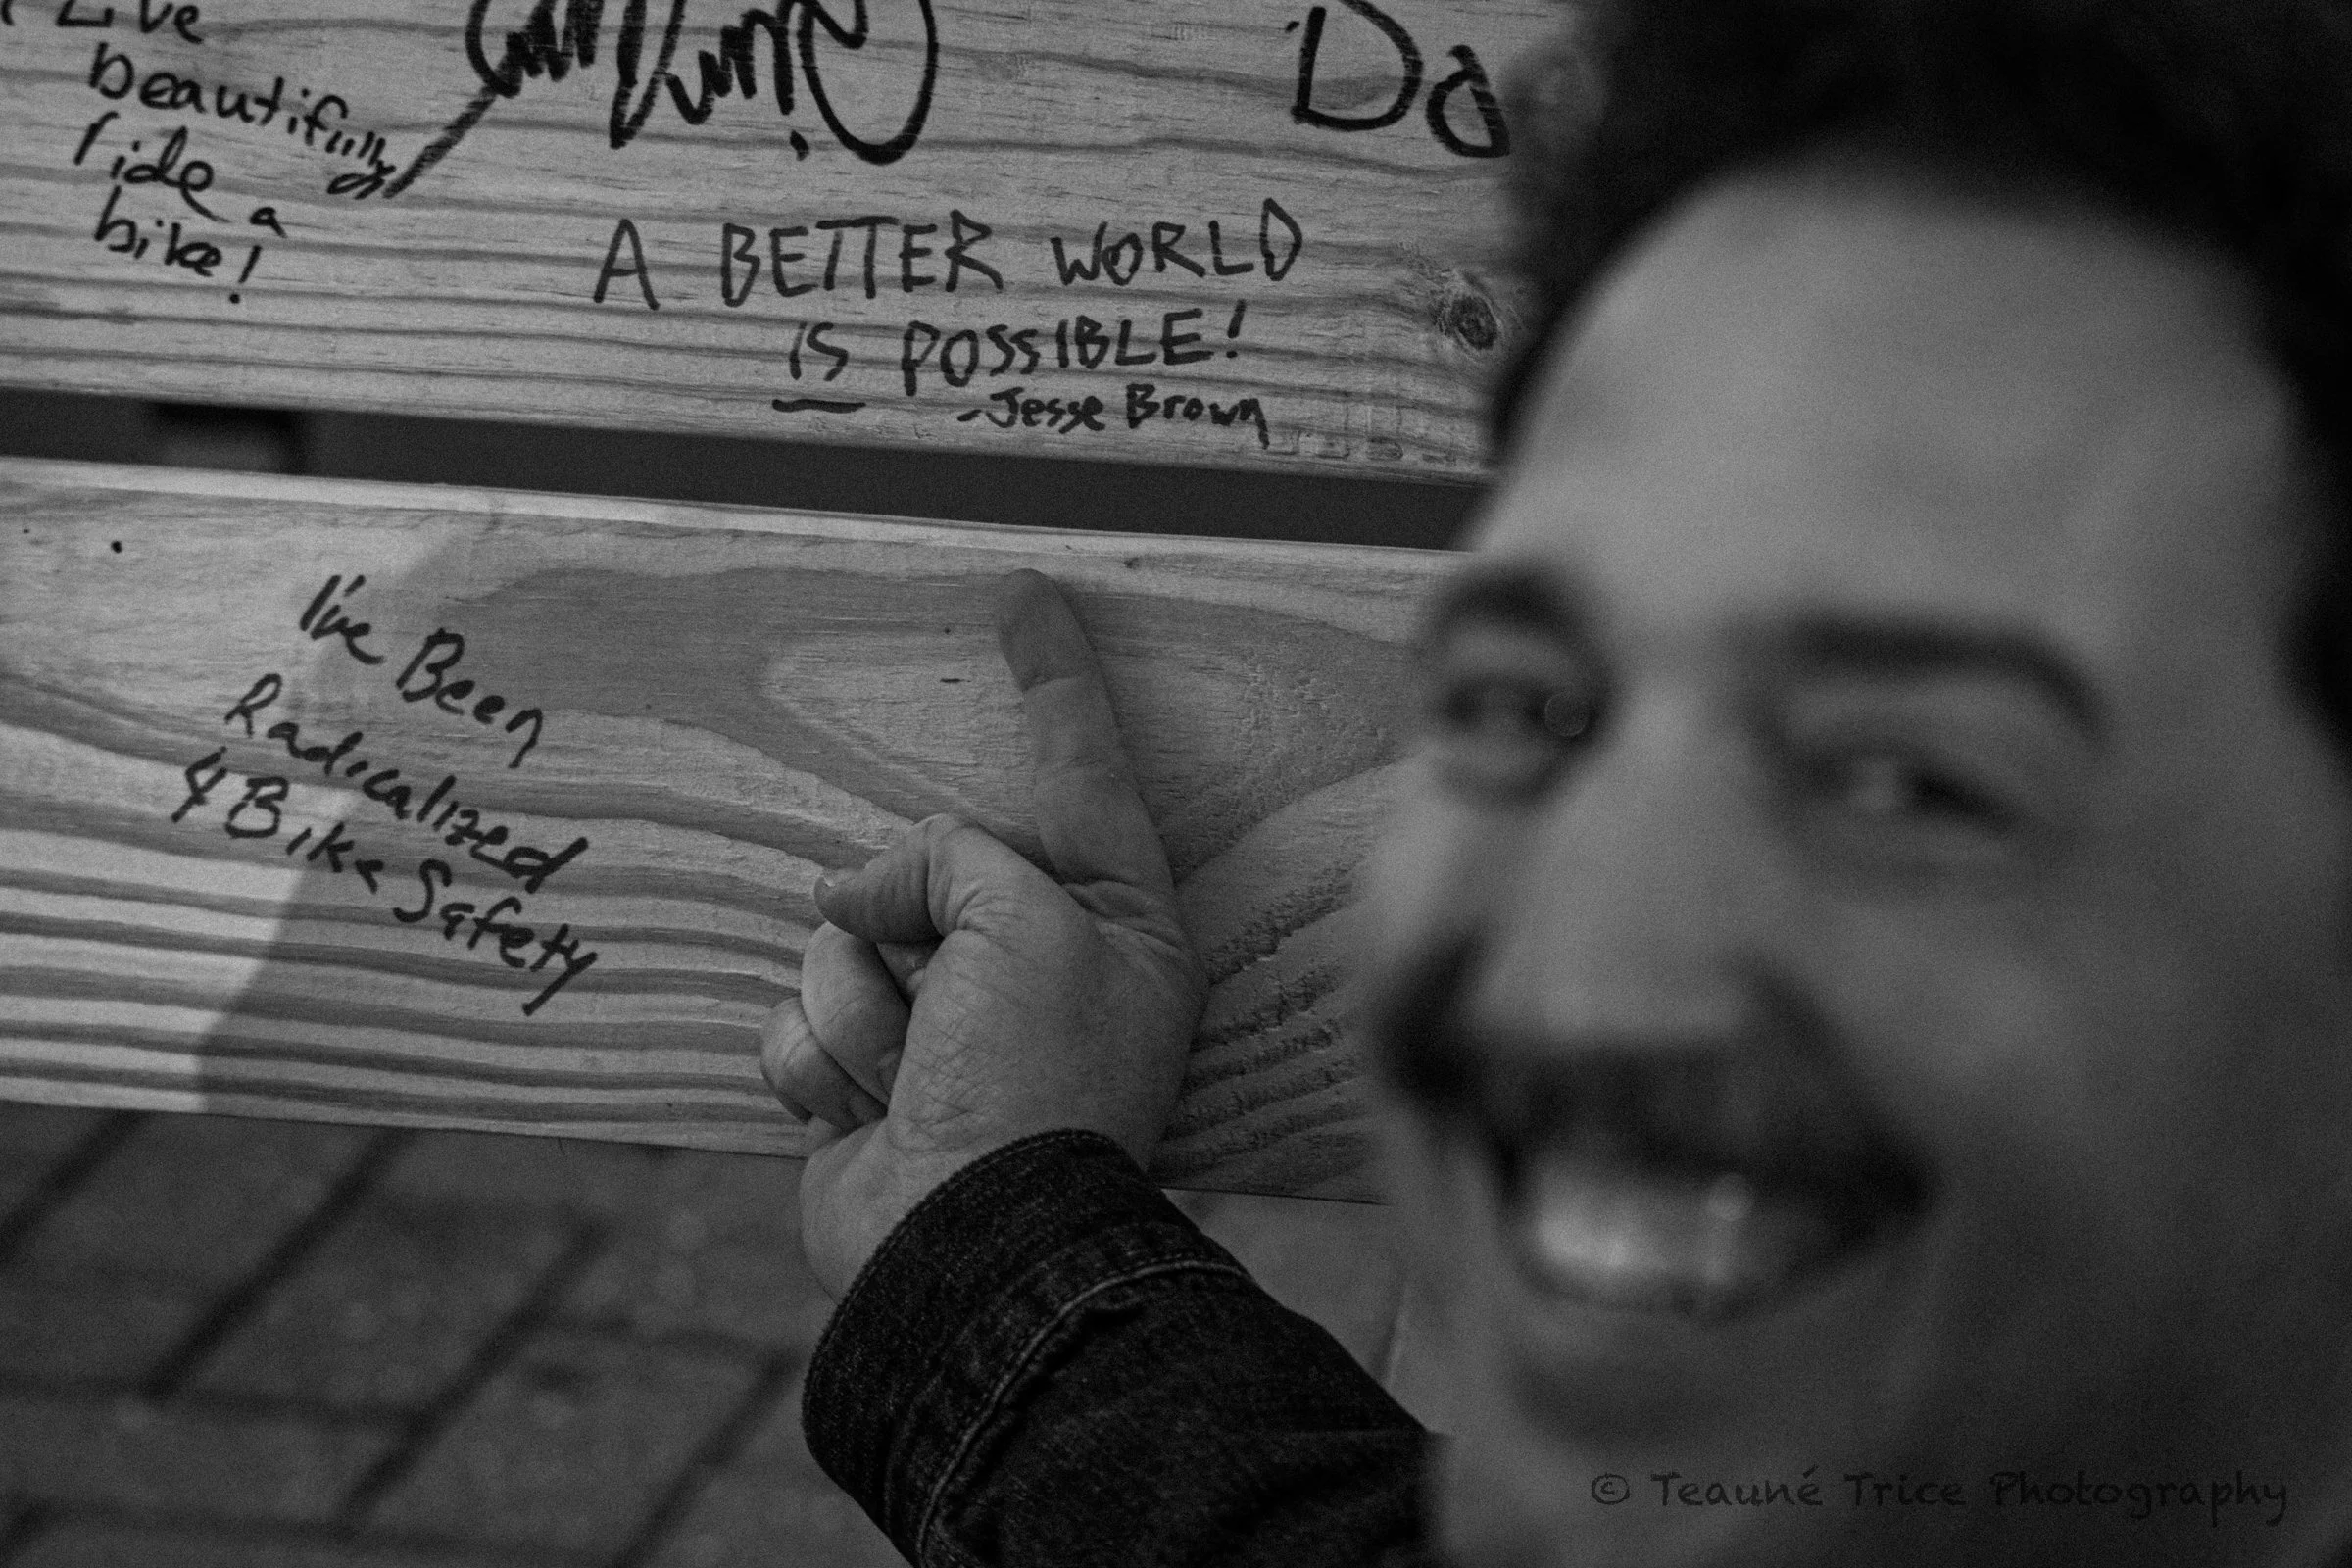 Live
beautifully
ride a
bike!
Da
A BETTER WORLD
IS POSSIBLE!
-Jesse Brown
I've Been
Radicalized
4 Bike Safety
© Teauné Trice Photography